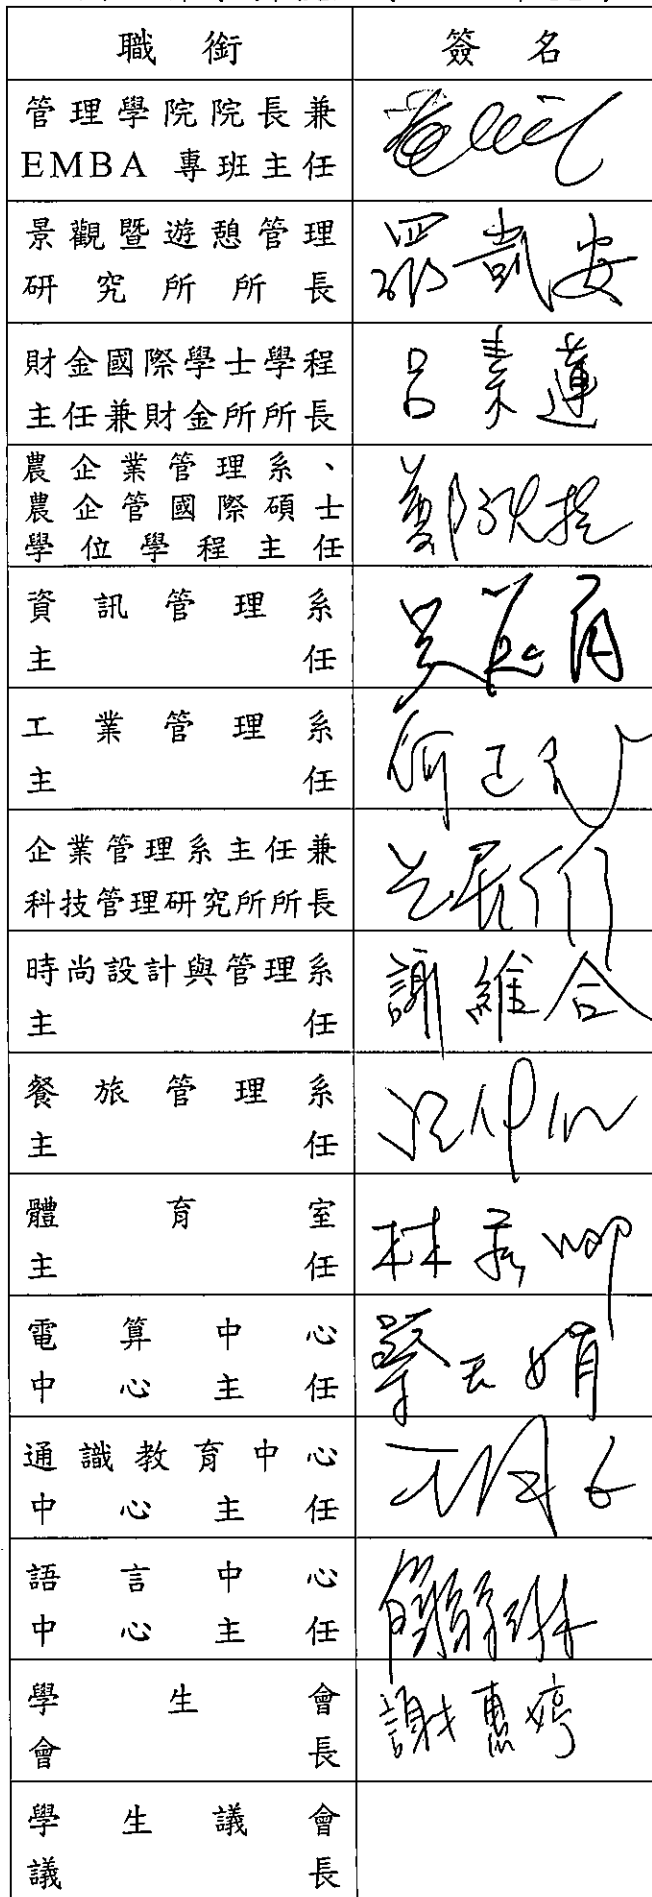 職銜 簽名
管理學院院長兼
EMBA 專班主任
景觀暨遊憩管理
研究所所長
羅凱安
財金國際學士學程
主任兼財金所所長
呂素蓮
農企業管理系、
農企管國際碩士
學位學程主任
資訊管理系
主任
工業管理系
主任
企業管理系主任兼
科技管理研究所所長
時尚設計與管理系
主任
謝維合
餐旅管理系
主任
體育室
主任
電算中心
中心主任
通識教育中心
中心主任
語言中心
中心主任
學生會
會長
謝惠婷
學生議會
議長